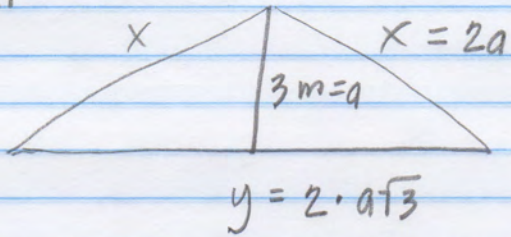 x x = 2a
3 m = a
y = 2 · a√3